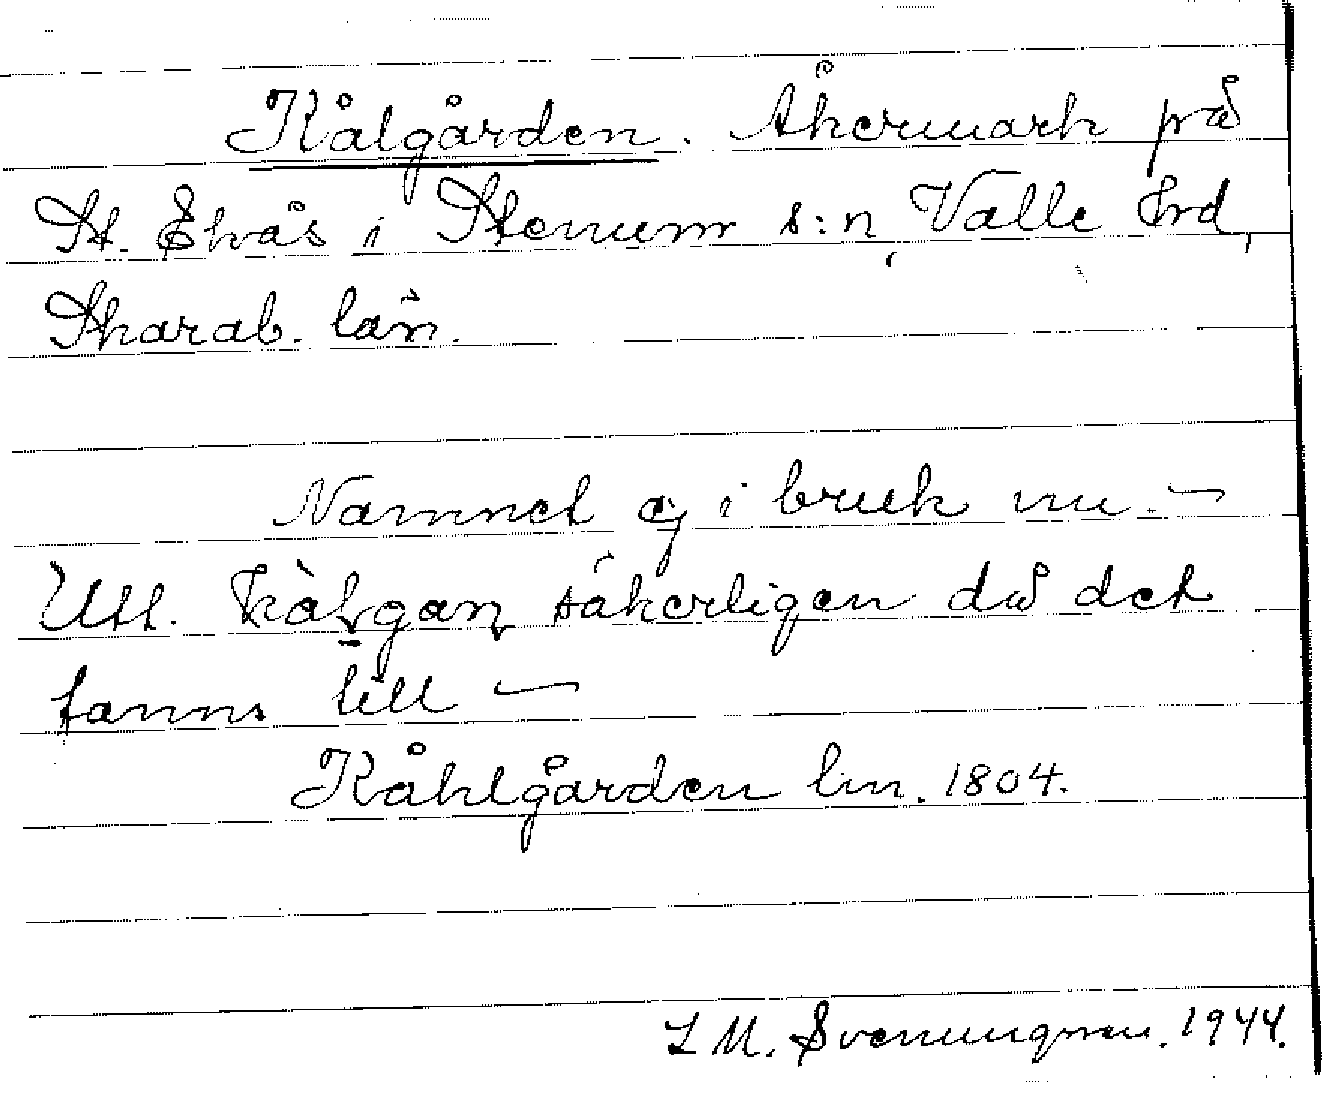 Kålgården. Åkermark på
St. Ekås i Stenum s:n, Valle hrd,
Skarab. län.
Namnet ej i bruk nu. —
Utt. kàḷgaṇ säkerligen då det
fanns till —
Kåhlgården lm. 1804.
L M. Svenungson. 1944.